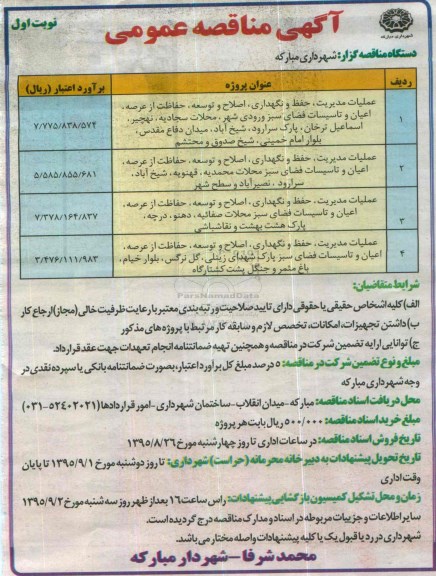 آگهی مناقصه عمومی
نوبت اول
شهرداری مبارکه
دستگاه مناقصه گزار: شهرداری مبارکه
ردیف عنوان پروژه برآورد اعتبار (ریال)
۱ عملیات مدیریت، حفظ و نگهداری، اصلاح و توسعه، حفاظت از عرصه،
اعیان و تاسیسات فضای سبز ورودی شهر، محلات سجادیه، نهچیر،
اسماعیل ترخان، پارک سرارود، شیخ آباد، میدان دفاع مقدس،
بلوار امام خمینی، شیخ صدوق و محتشم ۷/۷۷۵/۸۳۸/۵۷۴
۲ عملیات مدیریت، حفظ و نگهداری، اصلاح و توسعه، حفاظت از عرصه،
اعیان و تاسیسات فضای سبز محلات محمدیه، قهنویه، شیخ آباد،
سرارود، نصیرآباد و سطح شهر ۵/۵۸۵/۸۵۵/۶۸۱
۳ عملیات مدیریت، حفظ و نگهداری، اصلاح و توسعه، حفاظت از عرصه،
اعیان و تاسیسات فضای سبز محلات صفائیه، دهنو، درچه،
پارک هشت بهشت و نقاشباشی ۷/۳۷۸/۱۶۴/۸۳۷
۴ عملیات مدیریت، حفظ و نگهداری، اصلاح و توسعه، حفاظت از عرصه،
اعیان و تاسیسات فضای سبز پارک شهدای زینلی، گل نرگس، بلوار خیام،
باغ مثمر و جنگل پشت کشتارگاه ۳/۴۷۶/۱۱۱/۹۸۳
شرایط متقاضیان:
الف) کلیه اشخاص حقیقی یا حقوقی دارای تایید صلاحیت و رتبه بندی معتبر با رعایت ظرفیت خالی (مجاز) ارجاع کار
ب) داشتن تجهیزات، امکانات، تخصص لازم و سابقه کار مرتبط با پروژه های مذکور
ج) توانایی ارایه تضمین شرکت در مناقصه و همچنین تهیه ضمانتنامه انجام تعهدات جهت عقد قرارداد.
مبلغ و نوع تضمین شرکت در مناقصه: ۵ درصد مبلغ کل برآورد اعتبار، بصورت ضمانتنامه بانکی یا سپرده نقدی در
وجه شهرداری مبارکه
محل دریافت اسناد مناقصه: مبارکه-میدان انقلاب-ساختمان شهرداری-امور قراردادها (۵۲۴۰۲۰۲۱-۰۳۱)
مبلغ خرید اسناد مناقصه: ۵۰۰/۰۰۰ ریال بابت هر پروژه
تاریخ فروش اسناد مناقصه: در ساعات اداری تا روز چهارشنبه مورخ ۱۳۹۵/۸/۲۶
تاریخ تحویل پیشنهادات به دبیرخانه محرمانه (حراست) شهرداری: تا روز دوشنبه مورخ ۱۳۹۵/۹/۱ تا پایان
وقت اداری
زمان و محل تشکیل کمیسیون بازگشایی پیشنهادات: راس ساعت ۱۶ بعداز ظهر روز سه شنبه مورخ ۱۳۹۵/۹/۲
سایر اطلاعات و جزییات مربوطه در اسناد و مدارک مناقصه درج گردیده است.
شهرداری در رد یا قبول یک یا کلیه پیشنهادات واصله مختار می باشد.
محمد شرفا-شهردار مبارکه
ParsNamadData